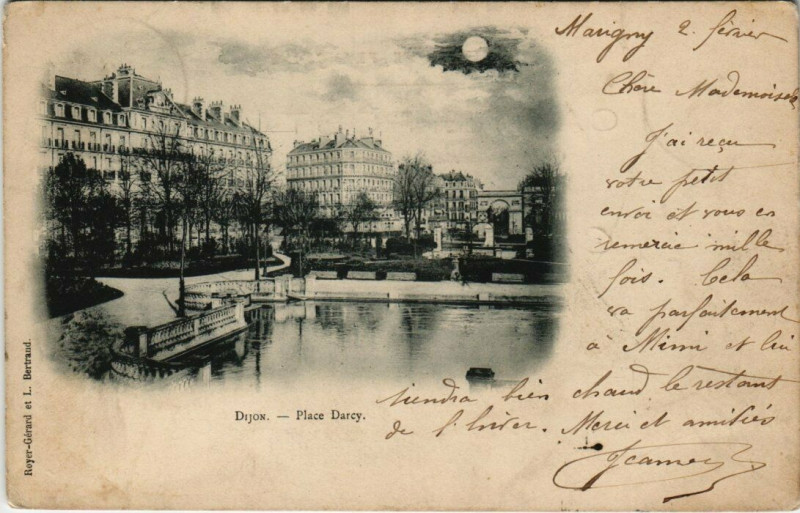 Marigny 2 février
Chère Mademoiselle
J'ai reçu
votre petit
envoi et vous en
remercie mille
fois. Cela
va parfaitement
à Mimi et lui
tiendra bien chaud le restant
de l'hiver. Merci et amitiés
Dijon. — Place Darcy.
Royer-Gérard et L. Bertrand.